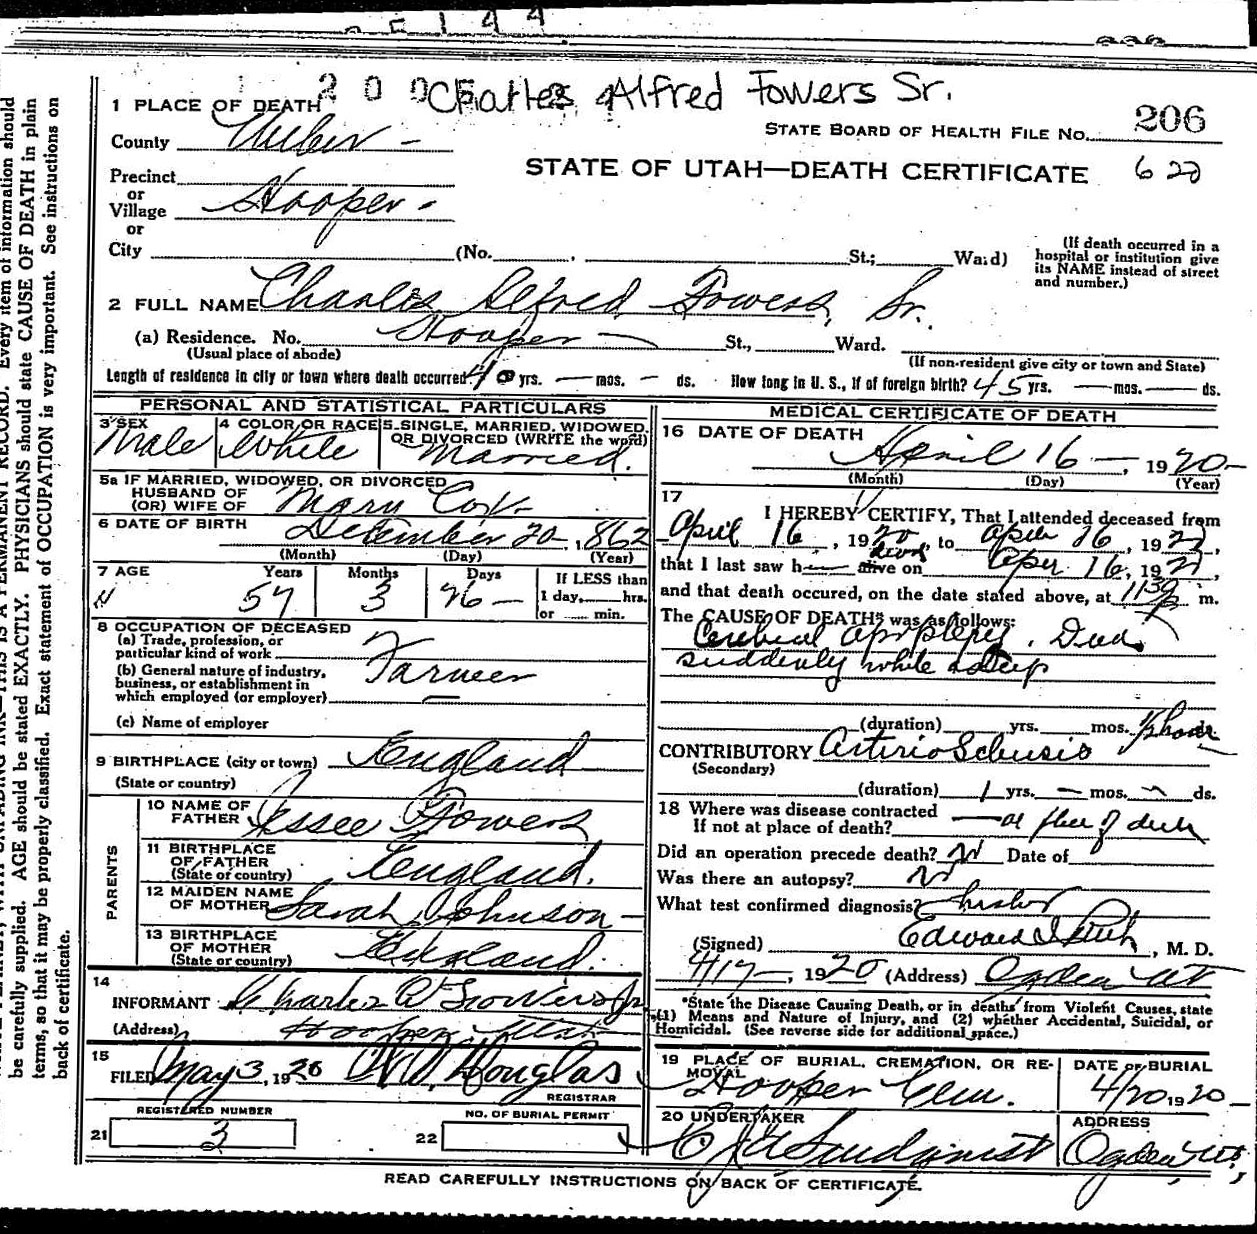 Charles Alfred Fowers Sr.
1 PLACE OF DEATH
County Weber
STATE BOARD OF HEALTH FILE NO. 206
STATE OF UTAH—DEATH CERTIFICATE 620
Precinct
or
Village Hooper
or
City (No. , St.; Ward)
(If death occurred in a
hospital or institution give
its NAME instead of street
and number.)
2 FULL NAME Charles Alfred Fowers, Sr.
(a) Residence. No. Hooper St., Ward.
(Usual place of abode) (If non-resident give city or town and State)
Length of residence in city or town where death occurred. 40 yrs. — mos. - ds. How long in U. S., if of foreign birth? 45 yrs. — mos. — ds.
PERSONAL AND STATISTICAL PARTICULARS
3 SEX 4 COLOR OR RACE 5 SINGLE, MARRIED, WIDOWED,
OR DIVORCED (WRITE the word)
Male White Married.
5a IF MARRIED, WIDOWED, OR DIVORCED
HUSBAND OF
(OR) WIFE OF Mary Cox
6 DATE OF BIRTH December 20, 1862
(Month) (Day) (Year)
7 AGE Years Months Days If LESS than
57 3 26 1 day, hrs.
or min.
8 OCCUPATION OF DECEASED
(a) Trade, profession, or
particular kind of work
Farmer
(b) General nature of industry,
business, or establishment in
which employed (or employer) —
(c) Name of employer
9 BIRTHPLACE (city or town) England
(State or country)
PARENTS
10 NAME OF
FATHER Jessee Fowers
11 BIRTHPLACE
OF FATHER
(State or country) England.
12 MAIDEN NAME
OF MOTHER Sarah Johnson
13 BIRTHPLACE
OF MOTHER
(State or country) England.
14
INFORMANT Charles A Fowers Jr
(Address) Hooper Utah
15
FILED May 3, 1920 Douglas
REGISTRAR
REGISTERED NUMBER NO. OF BURIAL PERMIT
21 3 22
MEDICAL CERTIFICATE OF DEATH
16 DATE OF DEATH
April 16, 1920
(Month) (Day) (Year)
17 I HEREBY CERTIFY, That I attended deceased from
April 16, 1920, to Apr 16, 192
that I last saw h alive on Apr 16, 192
dead
and that death occured, on the date stated above, at 1130 P m.
The CAUSE OF DEATH* was as follows:
Cerebral apoplexy. Died
suddenly while asleep
(duration) yrs. mos. ½ hour
CONTRIBUTORY Arterio Sclerosis
(Secondary)
(duration) 1 yrs. — mos. ds.
18 Where was disease contracted
If not at place of death? — at place of death
Did an operation precede death? No Date of
Was there an autopsy? No
What test confirmed diagnosis? history
(Signed) Edward I , M. D.
4/17, 1920 (Address) Ogden Ut
*State the Disease Causing Death, or in deaths from Violent Causes, state
(1) Means and Nature of Injury, and (2) whether Accidental, Suicidal, or
Homicidal. (See reverse side for additional space.)
19 PLACE OF BURIAL, CREMATION, OR RE-
MOVAL
DATE OF BURIAL
Hooper Cem. 4/20, 1920
20 UNDERTAKER ADDRESS
Ogden, Ut.
READ CAREFULLY INSTRUCTIONS ON BACK OF CERTIFICATE.
RECORD. Every item of information should
be carefully supplied. AGE should be stated EXACTLY. PHYSICIANS should state CAUSE OF DEATH in plain
terms, so that it may be properly classified. Exact statement of OCCUPATION is very important. See instructions on
back of certificate.